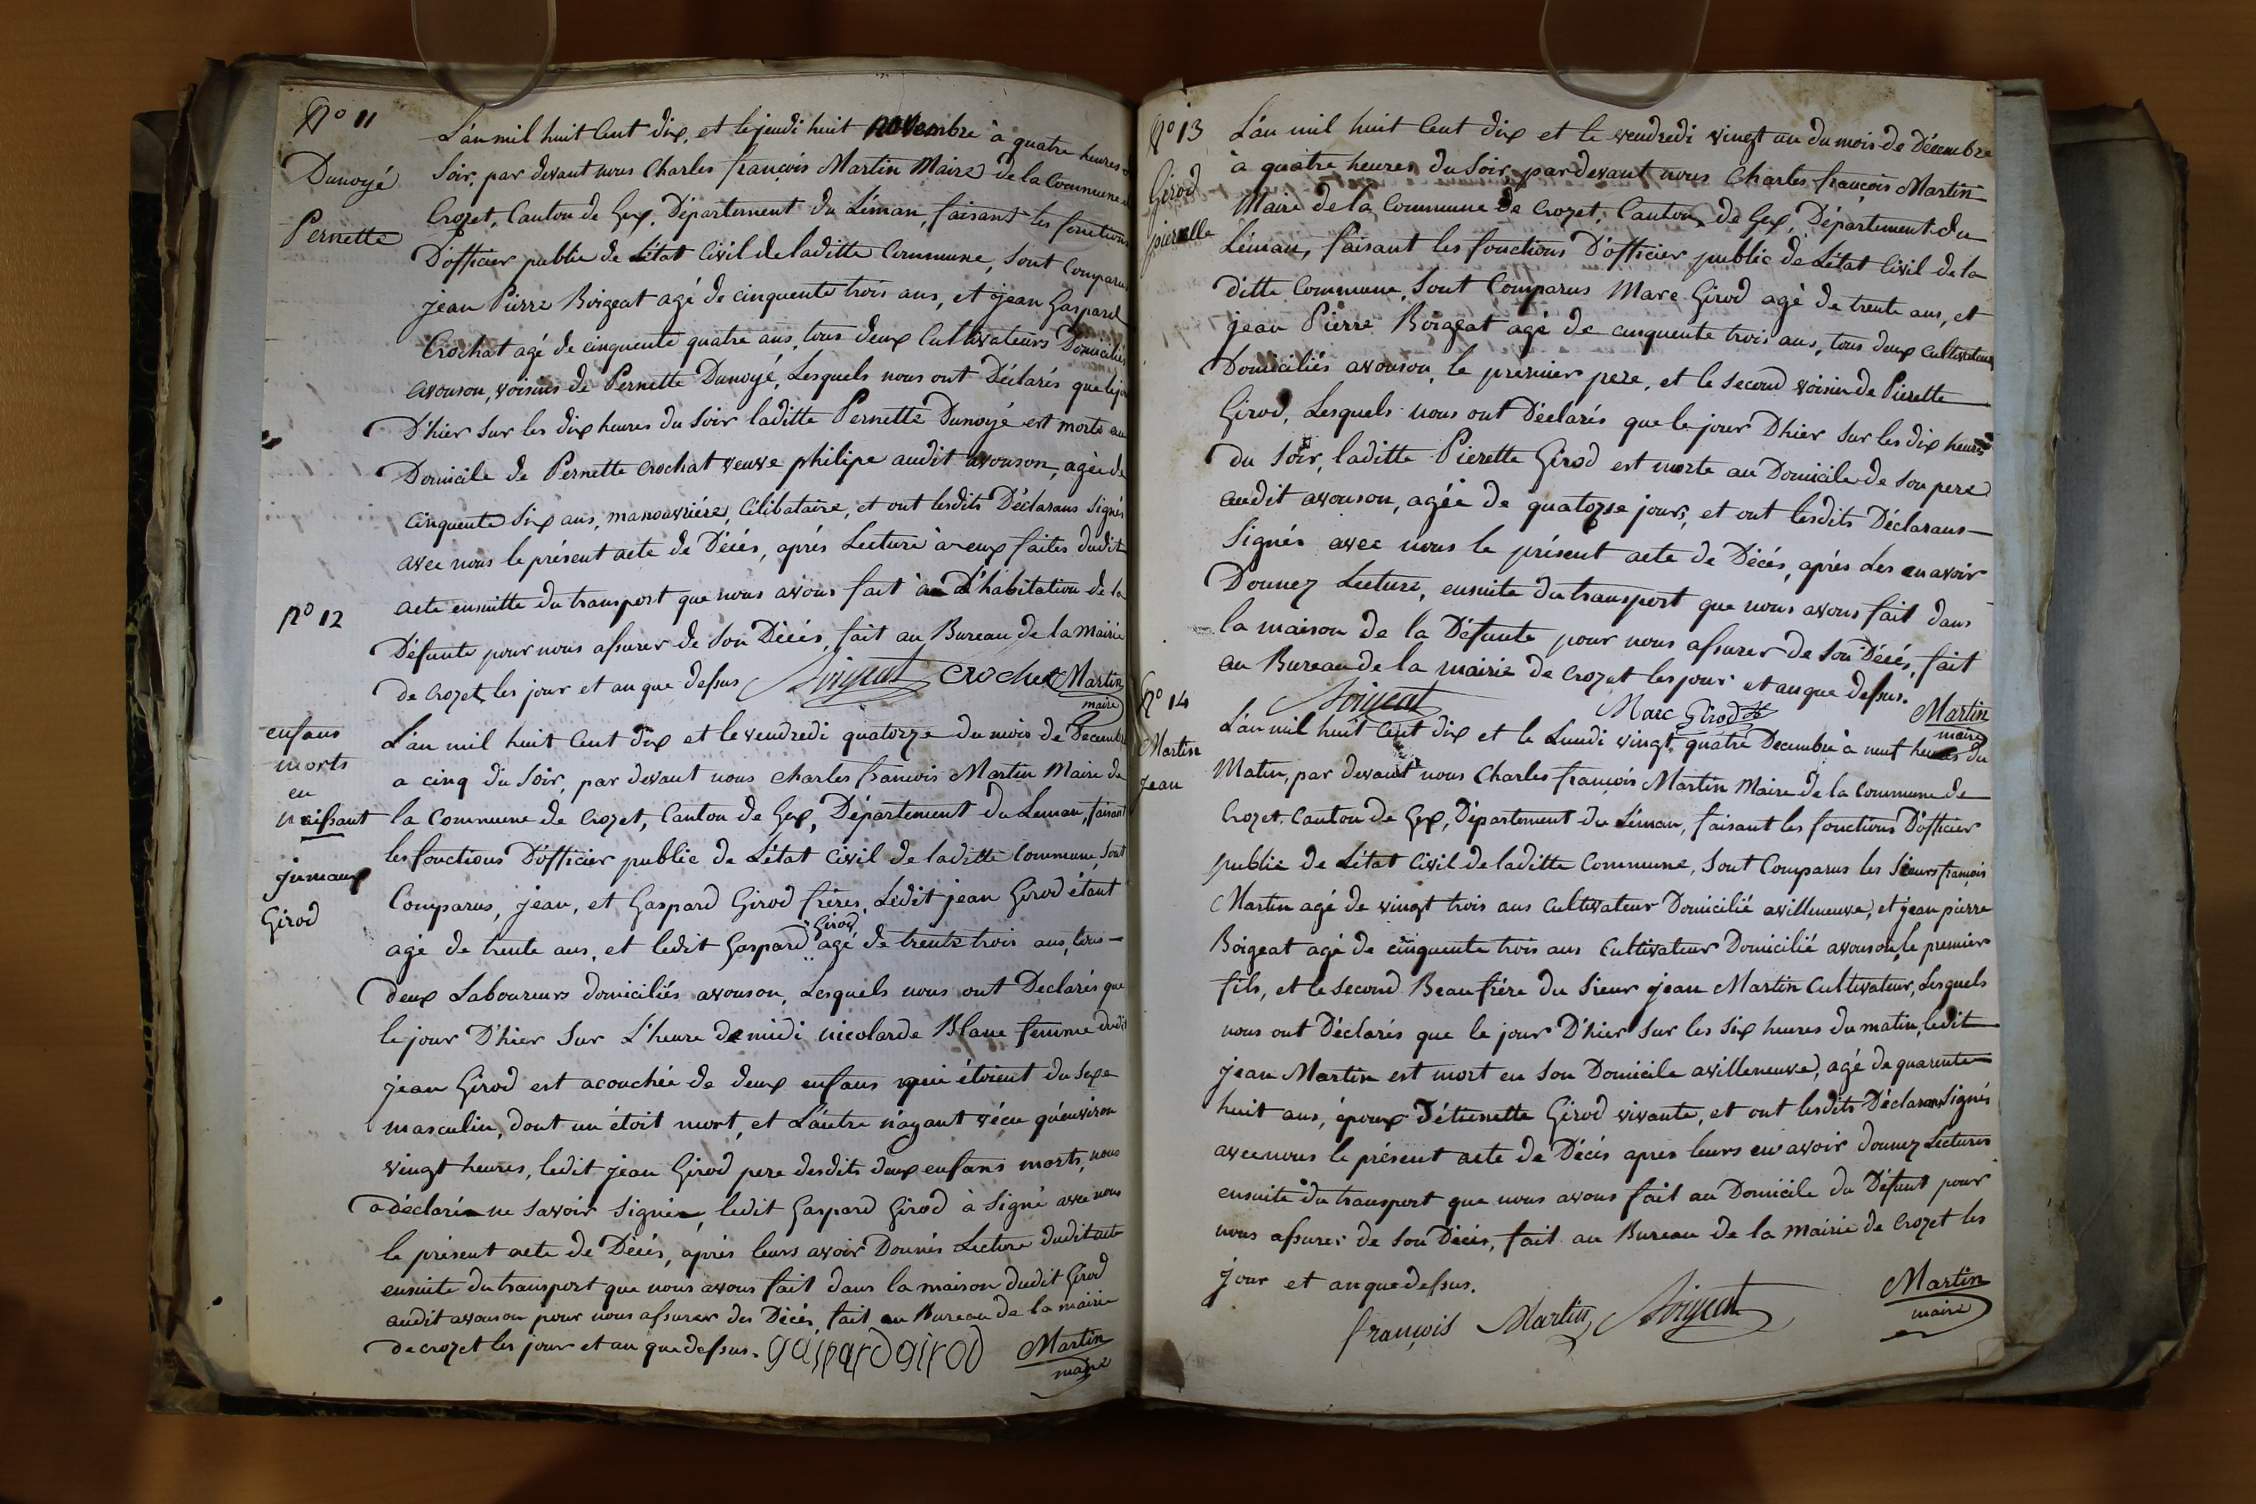 N° 11
Dunoyé
Pernette
L'an mil huit Cent dix, et le jeudi huit novembre à quatre heures
Soir, par devant nous Charles françois Martin Maire de la Commune
Crozet, Canton de Gex, Département du Léman, faisant les fonctions
D'officier public de L'état Civil de laditte Commune, Sont Comparus
jean Pierre Boigeat agé de cinquente trois ans, et jean Gaspard
Crochat agé de cinquente quatre ans, tous deux Cultivateurs Domiciliés
avouson, voisins de Pernette Dunoyé, Lesquels nous ont Déclarés que le jour
D'hier Sur les dix heures du Soir laditte Pernette Dunoyé est morte au
Domicile de Pernette Crochat veuve philipe audit avouson, agée de
Cinquente Six ans, manouvriére, Célibataire, et ont lesdits Déclarans Signés
avec nous le présent acte de Décés, aprés Lecture à eux faites dudit
acte ensuitte du transport que nous avons fait à L'habitation de la
Défunte pour nous assurer de Son Décés, fait au Bureau de la Mairie
de Crozet les jour et an que dessus Boigeat Crochat Martin
maire
N° 12
enfans
morts
en
naissant
jumaux
Girod
L'an mil huit Cent dix et le vendredi quatorze du mois de Decembre
a cinq du Soir, par devant nous charles francois Martin Maire de
la Commune de Crozet, Canton de Gex, Département du Leman, faisant
les fonctions D'officier public de L'état Civil de laditte Commune Sont
Comparus, jean, et Gaspard Girod fréres, Ledit jean Girod étant
agé de trente ans, et ledit Gaspard Girod agé de trente trois ans, tous
deux Laboureurs domiciliés avouson, Lesquels nous ont Declarés que
le jour D'hier Sur L'heure de midi nicolarde Blanc femme dudit
jean Girod est acouchée de deux enfans qui étoient du Sexe
masculin, dont un étoit mort, et L'autre n'ayant vécu qu'environ
vingt heures, ledit jean Girod pere desdits deux enfans morts, nous
a déclaré ne Savoir Signer, ledit Gaspard Girod à Signé avec nous
le présent acte de Décés, aprés leurs avoir Donnés Lecture dudit acte
ensuite du transport que nous avons fait dans la maison dudit Girod
audit avouson pour nous assurer des Décés, fait au Bureau de la mairie
de crozet les jour et an que dessus. gaspard girod Martin
maire
N° 13
Girod
pierette
L'an mil huit Cent dix et le vendredi vingt un du mois de Décembre
à quatre heures du Soir, par devant nous Charles françois Martin
Maire de la Commune de Crozet, Canton de Gex, Département du
Léman, faisant les fonctions D'officier public de L'état Civil de la
ditte Commune, Sont Comparus Marc Girod agé de trente ans, et
jean Pierre Boigeat agé de cinquente trois ans, tous deux Cultivateurs
Domiciliés avouson, le premier pere, et le Second voisin de Pierette
Girod, Lesquels nous ont Déclarés que le jour D'hier Sur les dix heures
du Soir, laditte Pierette Girod est morte au Domicile de Son pere
audit avouson, agée de quatorze jours, et ont lesdits Déclarans
Signés avec nous le présent acte de Décés, aprés Les en avoir
Donnez Lecture, ensuite du transport que nous avons fait dans
la maison de la Défunte pour nous assurer de Son Décés, fait
au Bureau de la mairie de Crozet les jour et an que dessus.
Boigeat Marc Girod Martin
maire
N° 14
Martin
Jean
L'an mil huit Cent dix et le Lundi vingt quatre Decembre à neuf heures du
Matin, par devant nous Charles françois Martin Maire de la Commune de
Crozet Canton de Gex, Département du Léman, faisant les fonctions D'officier
public de L'état Civil de laditte Commune, Sont Comparus les Sieurs françois
Martin agé de vingt trois ans Cultivateur Domicilié avilleneuve, et jean pierre
Boigeat agé de cinquente trois ans Cultivateur Domicilié avouson, le premier
fils, et le Second Beau frére du Sieur jean Martin Cultivateur, Lesquels
nous ont Déclarés que le jour D'hier Sur les Six heures du matin, ledit
jean Martin est mort en Son Domicile avilleneuve, agé de quarente
huit ans, époux D'étienette Girod vivante, et ont lesdits Déclarans Signés
avec nous le présent acte de Décés apres leurs en avoir donnez Lectures
ensuite du transport que nous avons fait au Domicile du Défunt pour
nous assurer de Son Décés, fait au Bureau de la Mairie de Crozet les
jour et an que dessus.
françois Martin, Boigeat Martin
maire